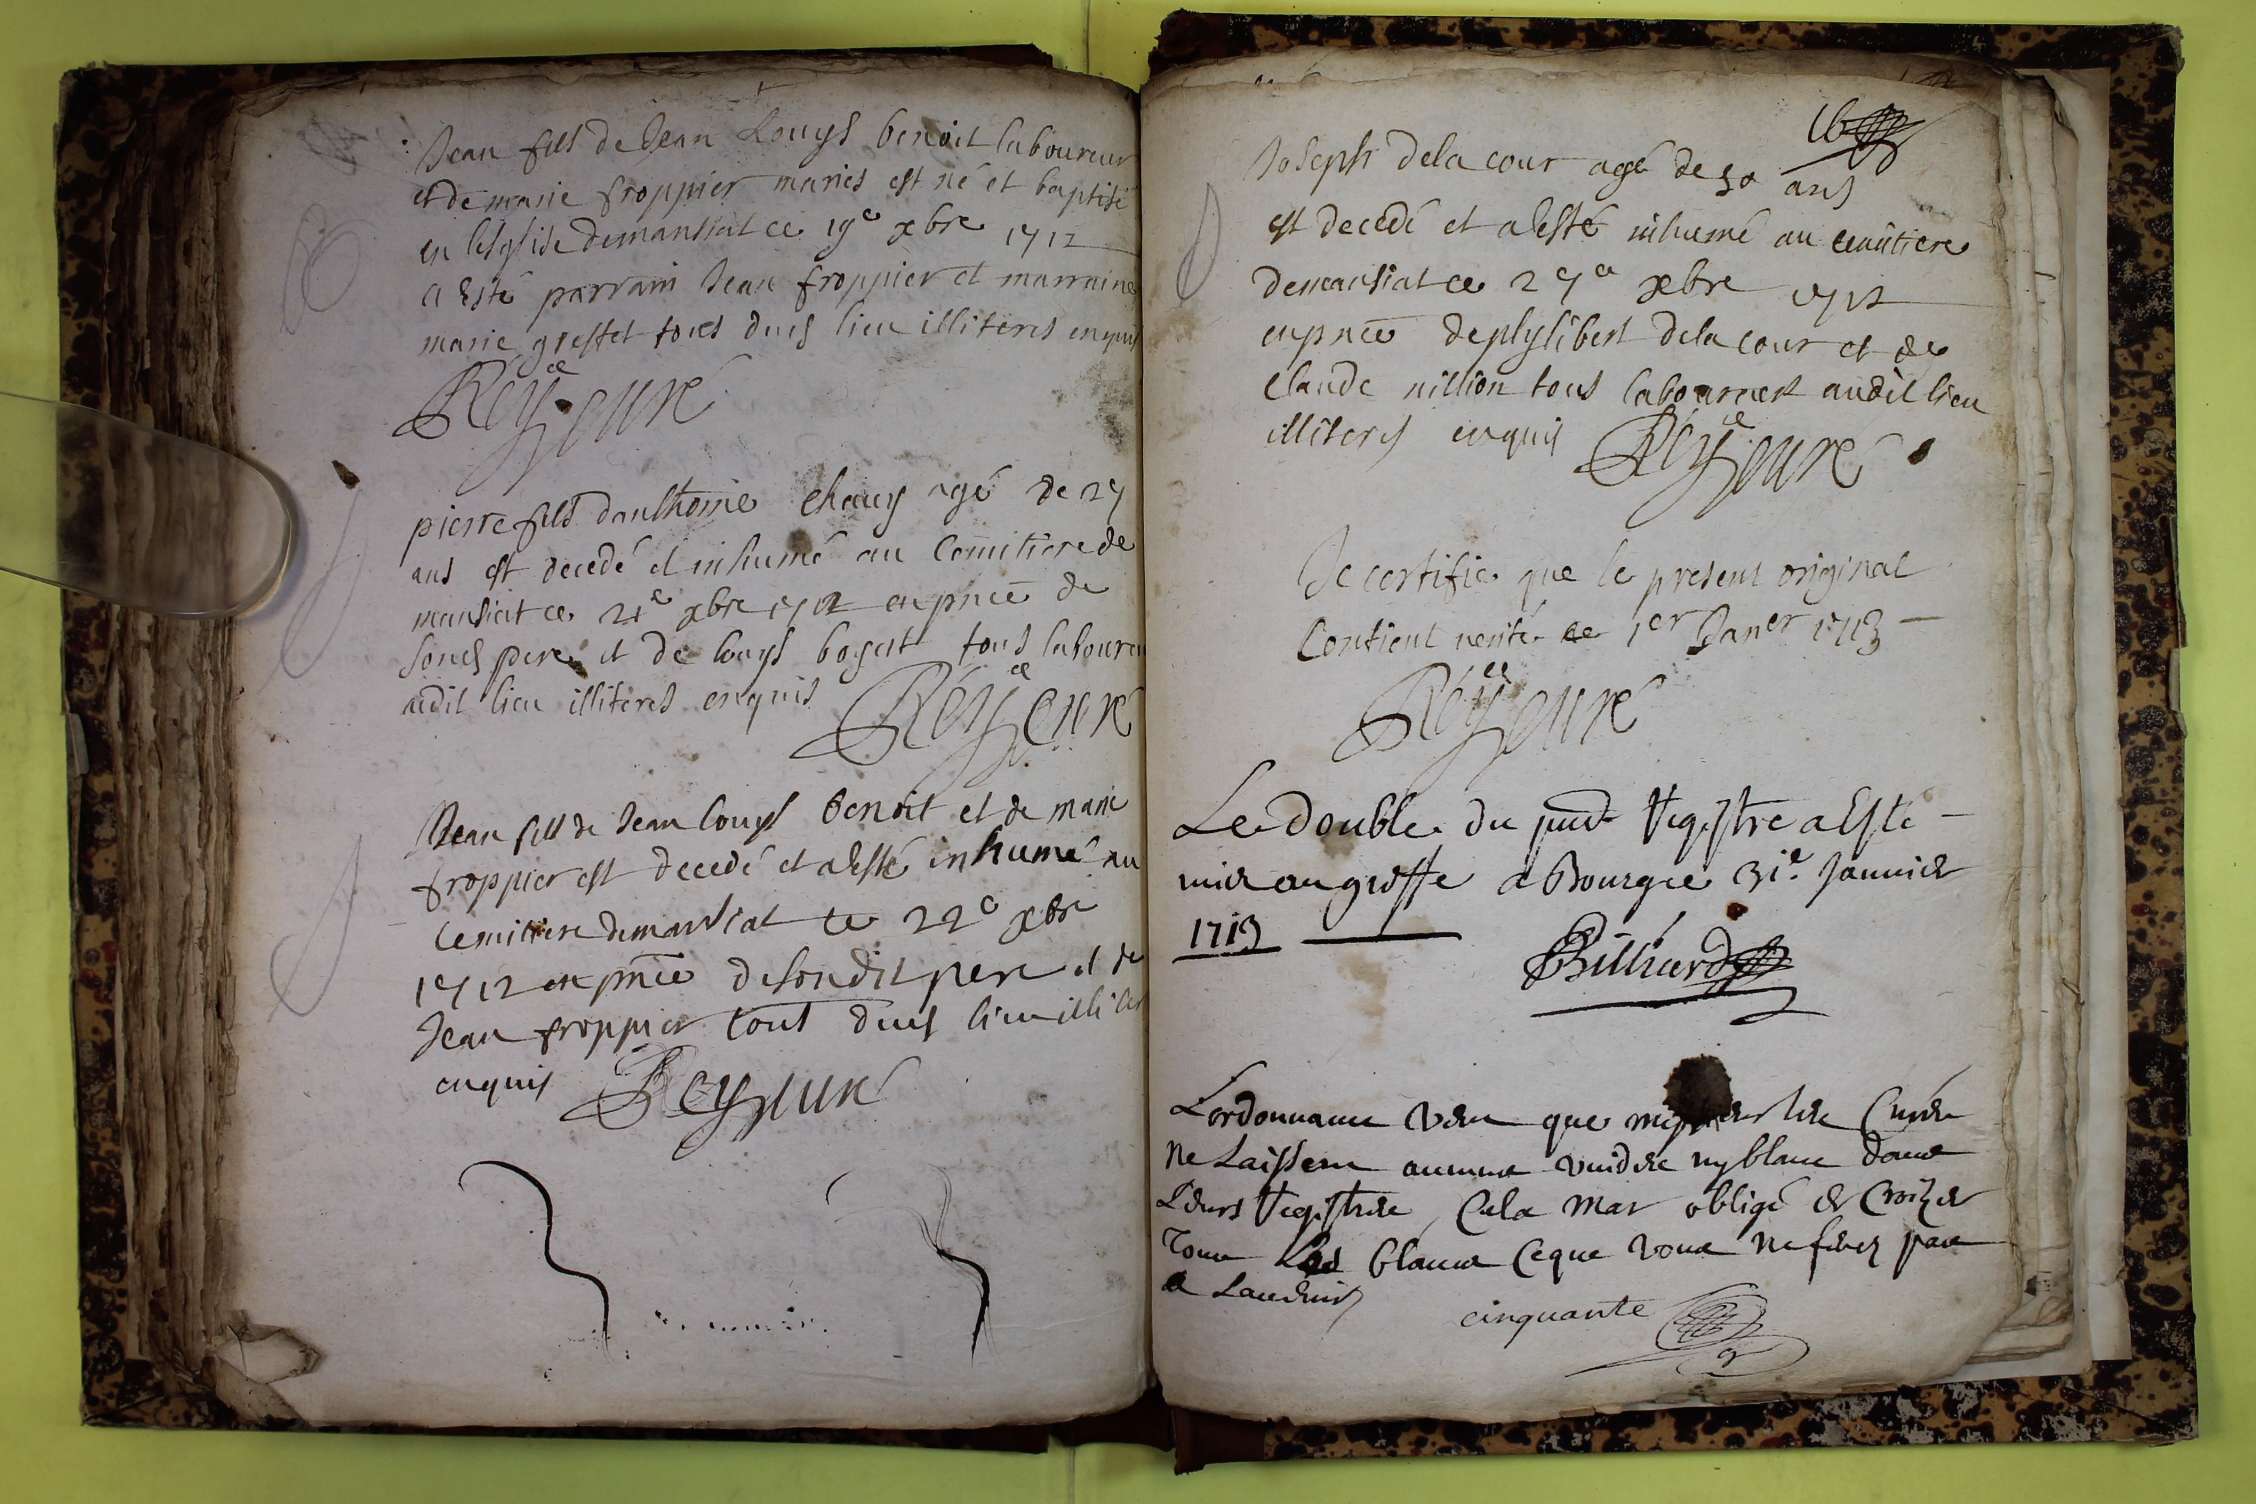 Jean fils de Jean Louys benoit laboureur
et de marie froppier maries est né et baptisé
en lesglise demansiat ce 19e xbre 1712
a esté parrain Jean froppier et marraine
marie greffet tous dud lieu illiteres enquis
Rey curé
pierre fils danthoine chavy agé de 27
ans est decedé et inhumé au Cemitiere de
mansiat ce 21e xbre 1712 en pnce de
sond pere et de louys boyat tous laboureu
audit lieu illiteres enquis Rey curé
Jean fils de Jean louys benoit et de marie
froppier est decedé et a esté inhumé au
Cemitiere demansiat ce 22e xbre
1712 en pnce desondit pere et de
Jean froppier tous dud lieu illiter
enquis Rey curé
16
Joseph delacour agé de 50 ans
est decedé et a esté inhumé au cemitiere
demansiat ce 27e xbre 1712
en pnce de phylibert delacour et de
Claude nillion tous laboureurs audit lieu
illiteres enquis Rey curé
Je certifie que le present original
Contient verité ce 1er Janer 1713
Rey curé
Le double du pnt Registre a esté
mis au greffe a Bourg ce 31e Janvier
1713
Billiard
Lordonnance veut que messieurs les Curés
ne Laissent aucuns vuides ny blanc dans
Leurs Registres, Cela mat obligé de Croizer
Tous Les blancs Ceque vous ne ferez pas
a Ladvenir
cinquante